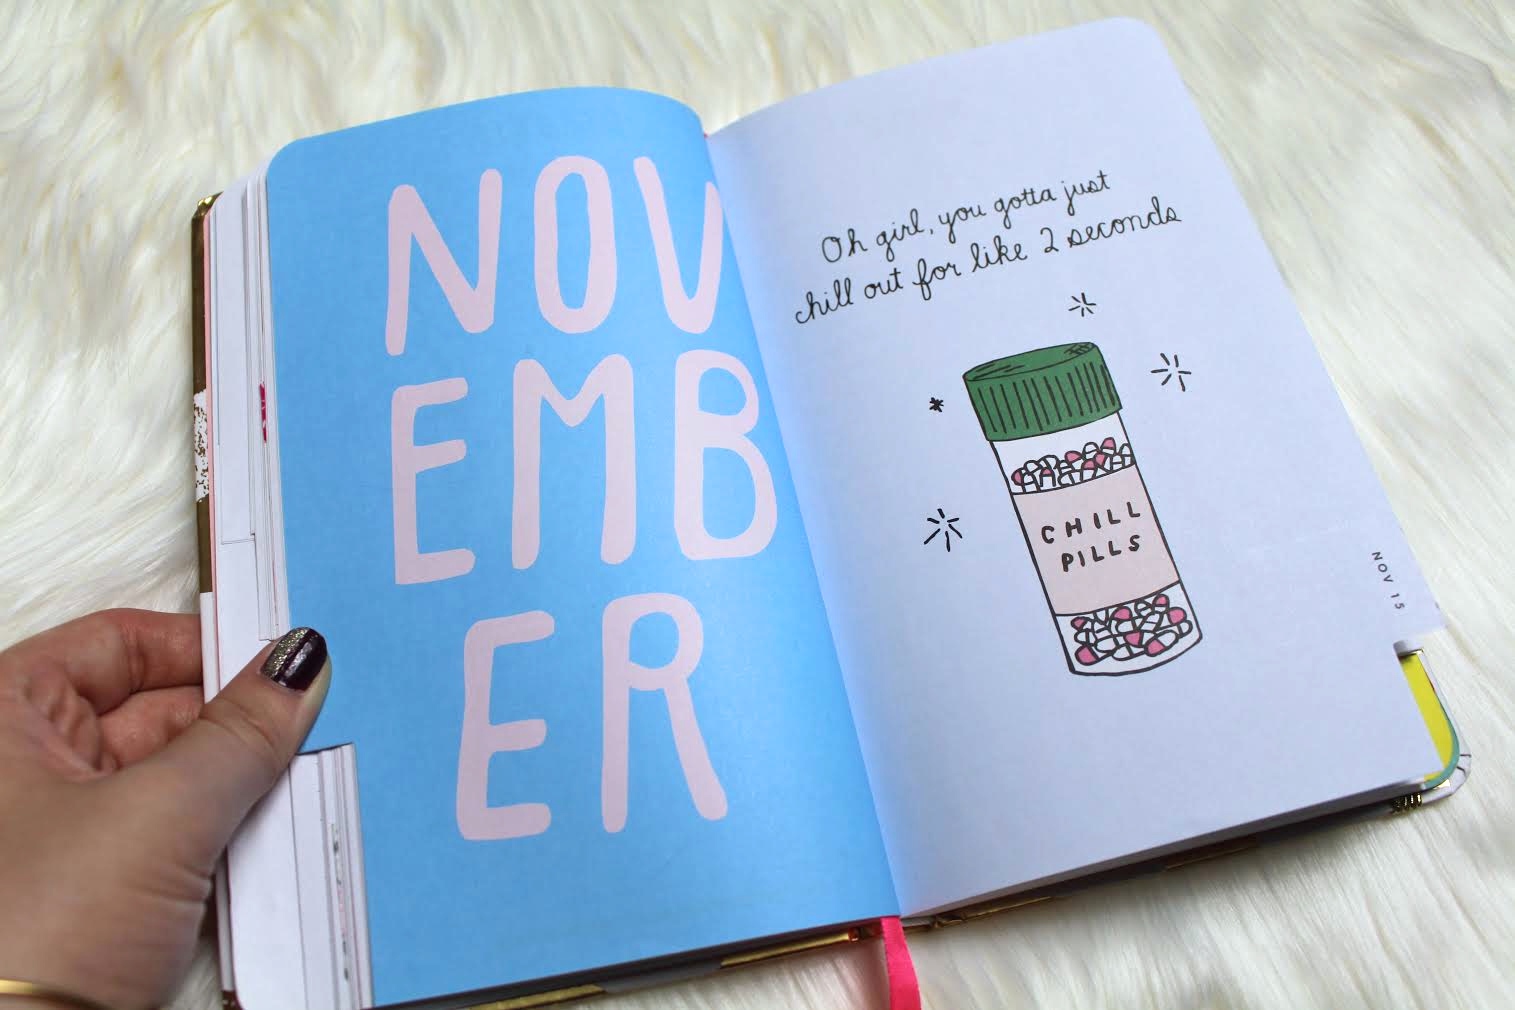 NOV
EMB
ER
Oh girl, you gotta just
chill out for like 2 seconds
CHILL
PILLS
NOV 15